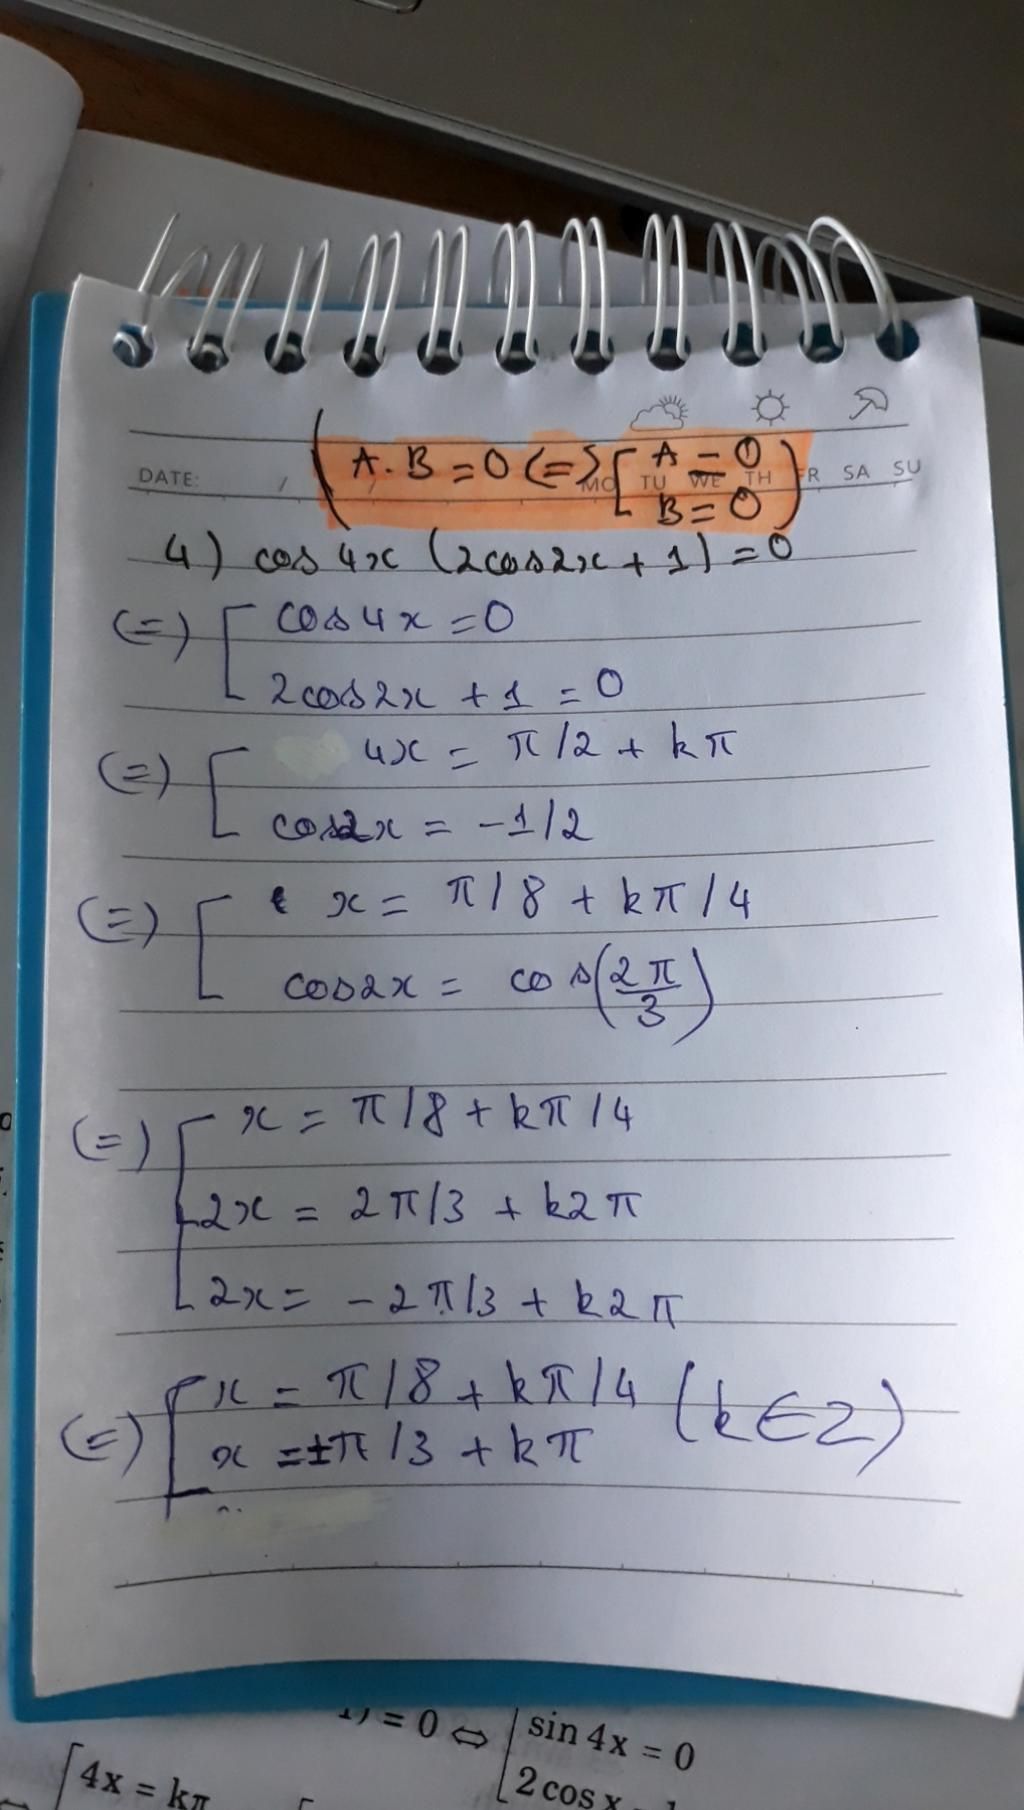 (A.B=0 (=) [A=0
DATE: / / MO TU WE TH FR SA SU
B=0)
4) cos4x (2cos2x + 1) = 0
(=) [cos4x = 0
2cos2x + 1 = 0
(=) [4x = π/2 + kπ
cos2x = -1/2
(=) [x = π/8 + kπ/4
cos2x = cos(2π/3)
(=) [x = π/8 + kπ/4
2x = 2π/3 + k2π
2x = -2π/3 + k2π
(=) [x = π/8 + kπ/4 (k∈Z)
x = ±π/3 + kπ
1) = 0 ⇔ [sin 4x = 0
[4x = kπ
2 cos x